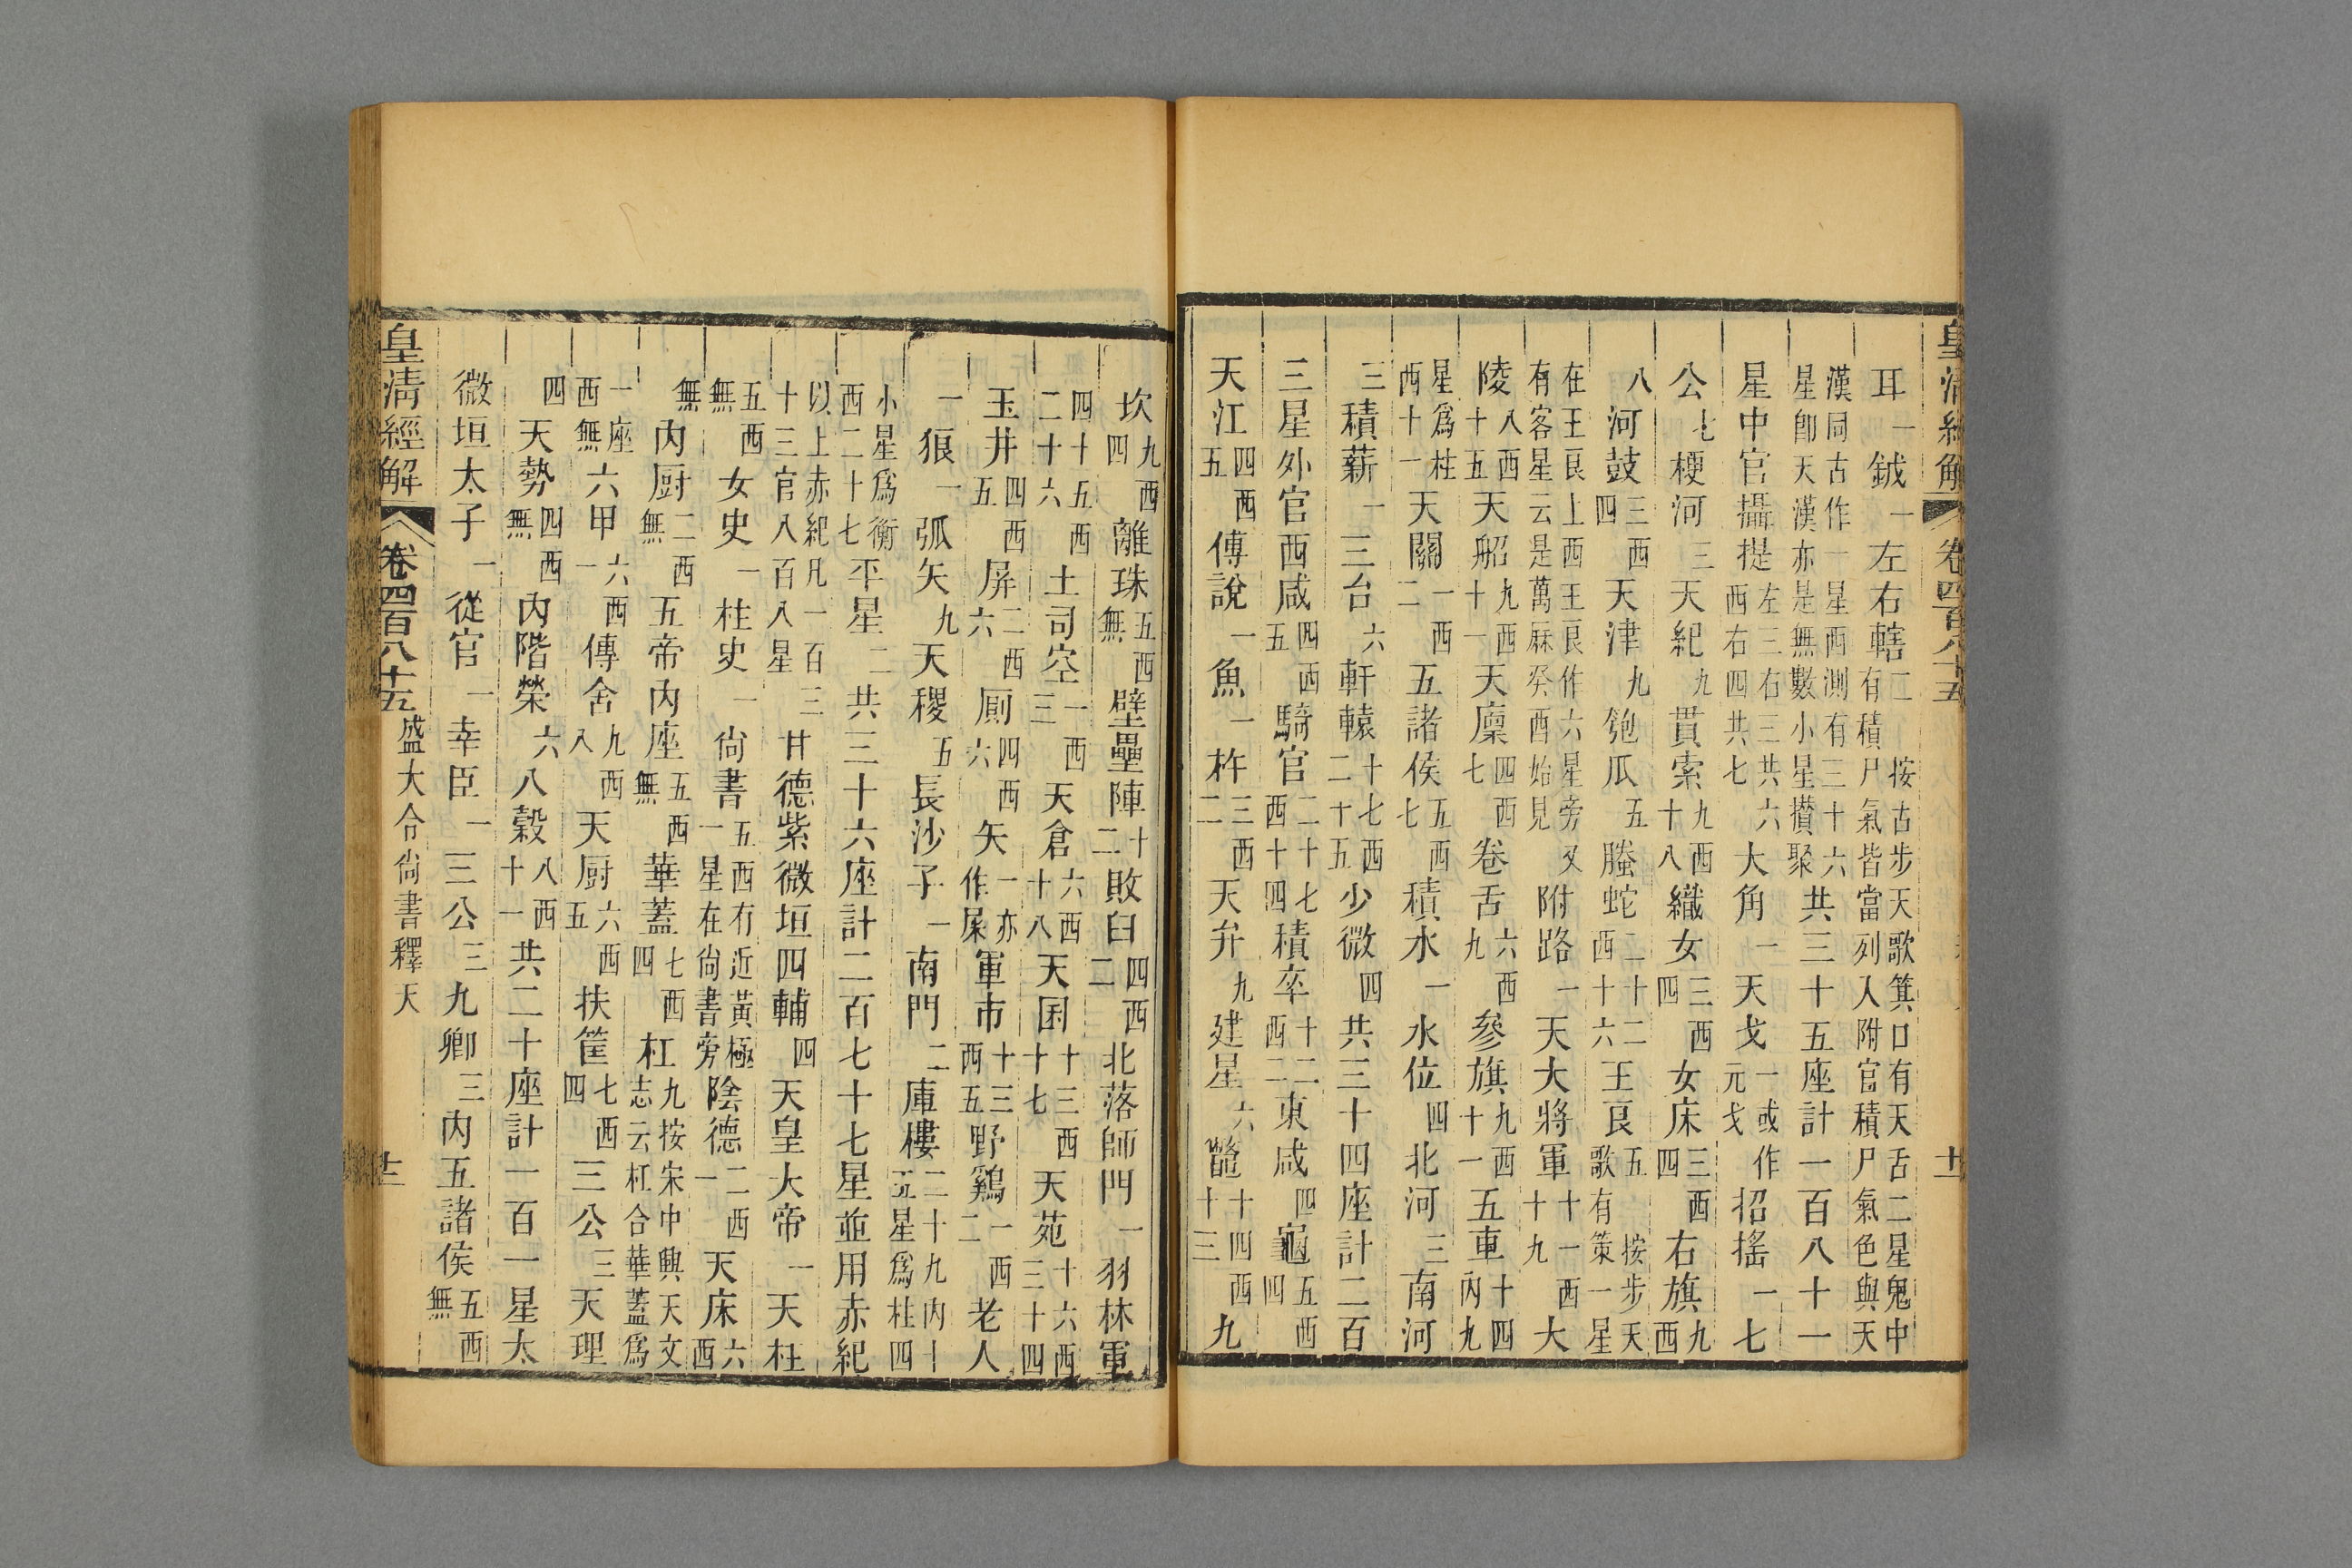 皇清經解 卷四百八十五 十一
耳一鉞一左右轄二按古步天歌箕口有天舌二星鬼中有積尸氣皆當列人附官積尸氣色與天
漢同古作一星西測有三十六星卽天漢亦是無數小星攢聚共三十五座計一百八十一
星中官攝提左三右三共六西右四共七大角一天戈一或作元戈招搖一七
公七梗河三天紀九貫索九西十八織女三西四女床三西四右旗九西
八河鼓三西四天津九匏瓜五螣蛇二十二西十六王良五按步天歌有策一星
在王良上西王良作六星旁又有客星云是萬厤癸酉始見附路一天大將軍十一西十九大
陵八西十五天船九西十一天廩四西七卷舌六西九參旗九西十一五車十四內九
星爲柱西十一天關一西二五諸侯五西七積水一水位四北河三南河
三積薪一三台六軒轅十七西二十五少微四共三十四座計二百
三星外官西咸四西五騎官二十七西十四積卒十二西二東咸四龜五西四
天江四西五傳說一魚一杵三西二天弁九建星六鼈十四西十三九
坎九西四離珠五西無壁壘陣十二敗臼四西二北落師門一羽林軍
四十五西二十六土司空一西三天倉六西十八天囷十三西十七天苑十六西三十四
玉井四西五屏二西六厠四西六矢一亦作屎軍市十三西五野鷄一西二老人
一狼一弧矢九天稷五長沙子一南門二庫樓二十九內十五星爲柱四
小星爲衡西二十七平星二共三十六座計二百七十七星並用赤紀
以上赤紀凡一百三十三官八百八星甘德紫微垣四輔四天皇大帝一天柱
五西無女史一柱史一尙書五西有近黃極一星在尙書旁陰德二西一天床六西
無內厨二西無五帝內座五西無華蓋七西四杠九按宋中興天文志云杠合華蓋爲
一座西無六甲六西一傳舍九西八天厨六西五扶筐七西四三公三天理
四天勢四西無內階榮六八穀八西十一共二十座計一百一星太
微垣太子一從官一幸臣一三公三九卿三內五諸侯五西無
皇清經解 卷四百八十五 盛大令尙書釋天 十二